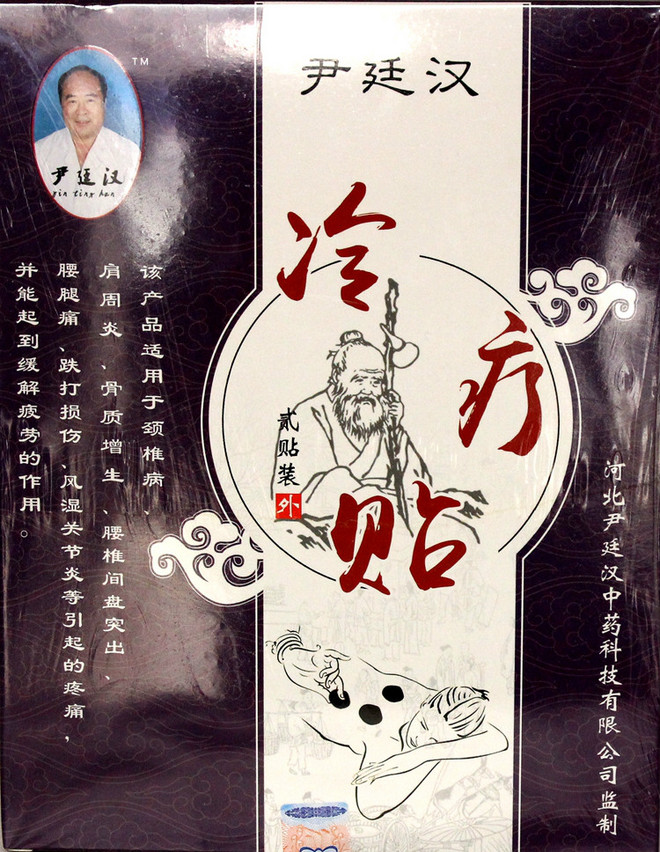 TM
尹廷汉
yin ting han
尹廷汉
冷疗贴
贰贴装
外
该产品适用于颈椎病、
肩周炎、骨质增生、腰椎间盘突出、
腰腿痛、跌打损伤、风湿关节炎等引起的疼痛,
并能起到缓解疲劳的作用。
河北尹廷汉中药科技有限公司监制